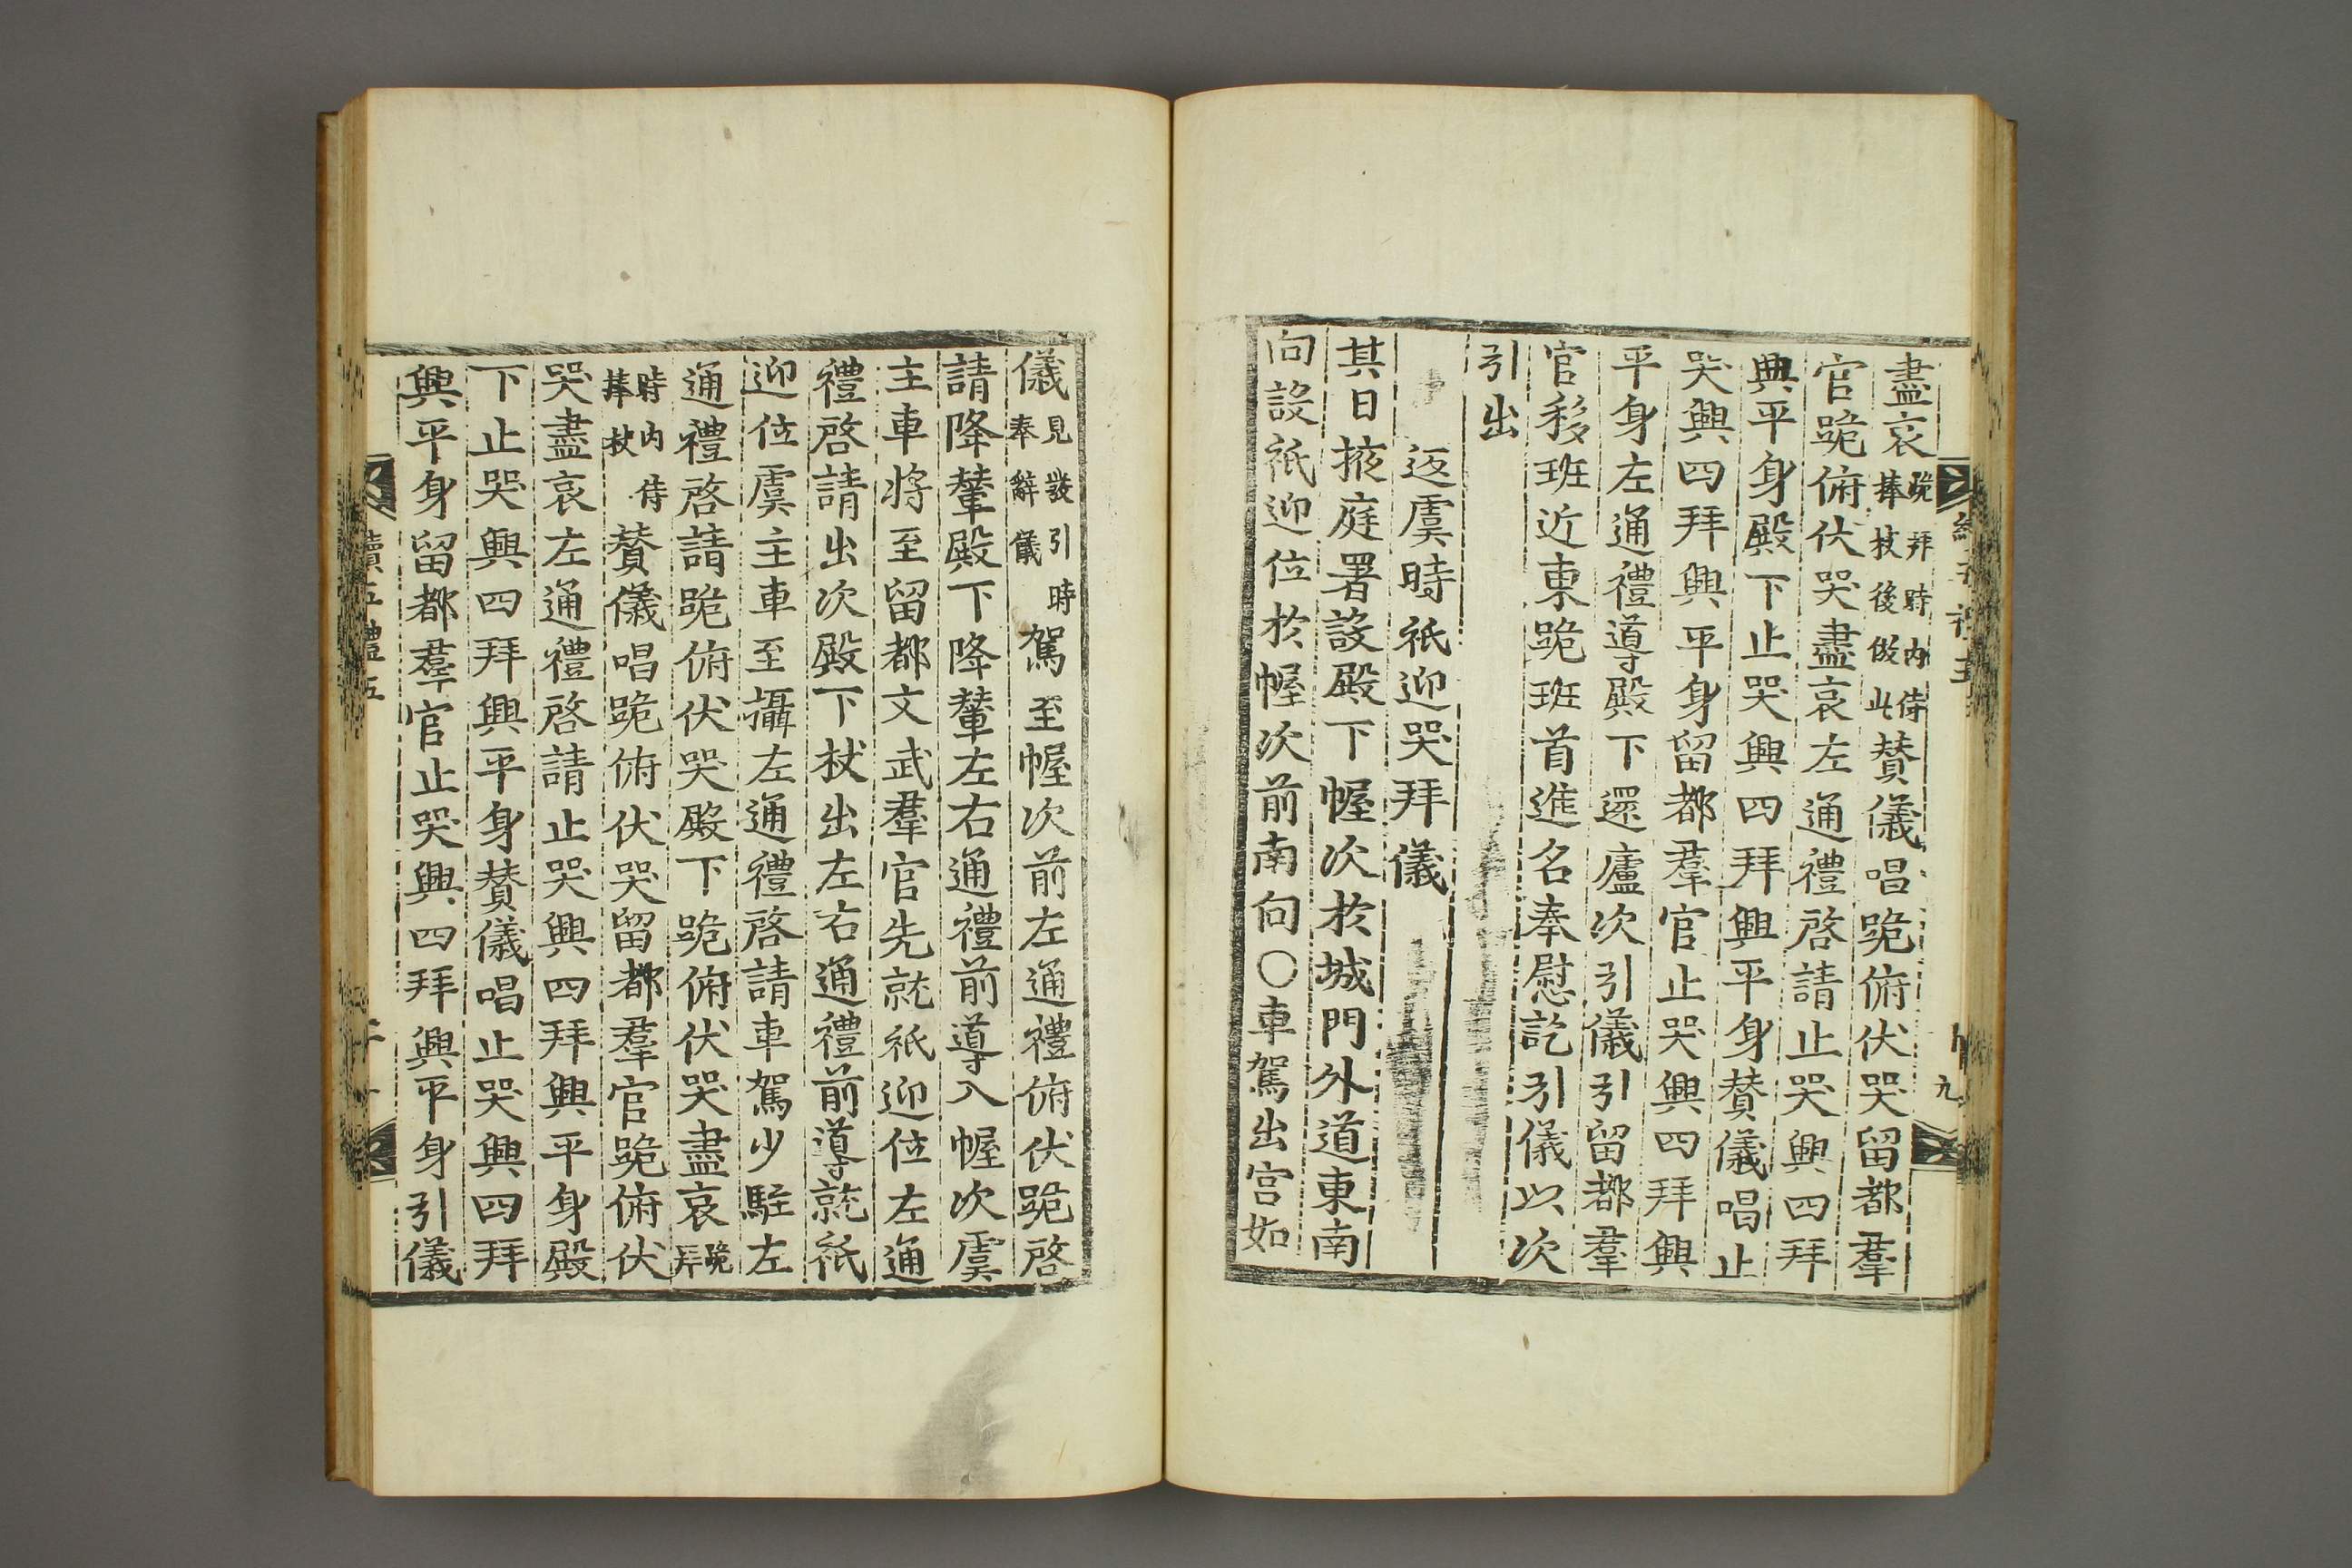 盡哀跪拜時內侍捧杖後倣此贊儀唱跪俯伏哭留都羣
官跪俯伏哭盡哀左通禮啓請止哭興四拜
興平身殿下止哭興四拜興平身贊儀唱止
哭興四拜興平身留都羣官止哭興四拜興
平身左通禮導殿下還廬次引儀引留都羣
官移班近東跪班首進名奉慰訖引儀以次
引出
返虞時祇迎哭拜儀
其日掖庭署設殿下幄次於城門外道東南
向設祇迎位於幄次前南向○車駕出宮如
儀見發引時奉辭儀駕至幄次前左通禮俯伏跪啓
請降輦殿下降輦左右通禮前導入幄次虞
主車將至留都文武羣官先就祇迎位左通
禮啓請出次殿下杖出左右通禮前導就祇
迎位虞主車至攝左通禮啓請車駕少駐左
通禮啓請跪俯伏哭殿下跪俯伏哭盡哀跪拜
時內侍捧杖贊儀唱跪俯伏哭留都羣官跪俯伏
哭盡哀左通禮啓請止哭興四拜興平身殿
下止哭興四拜興平身贊儀唱止哭興四拜
興平身留都羣官止哭興四拜興平身引儀
續五禮五